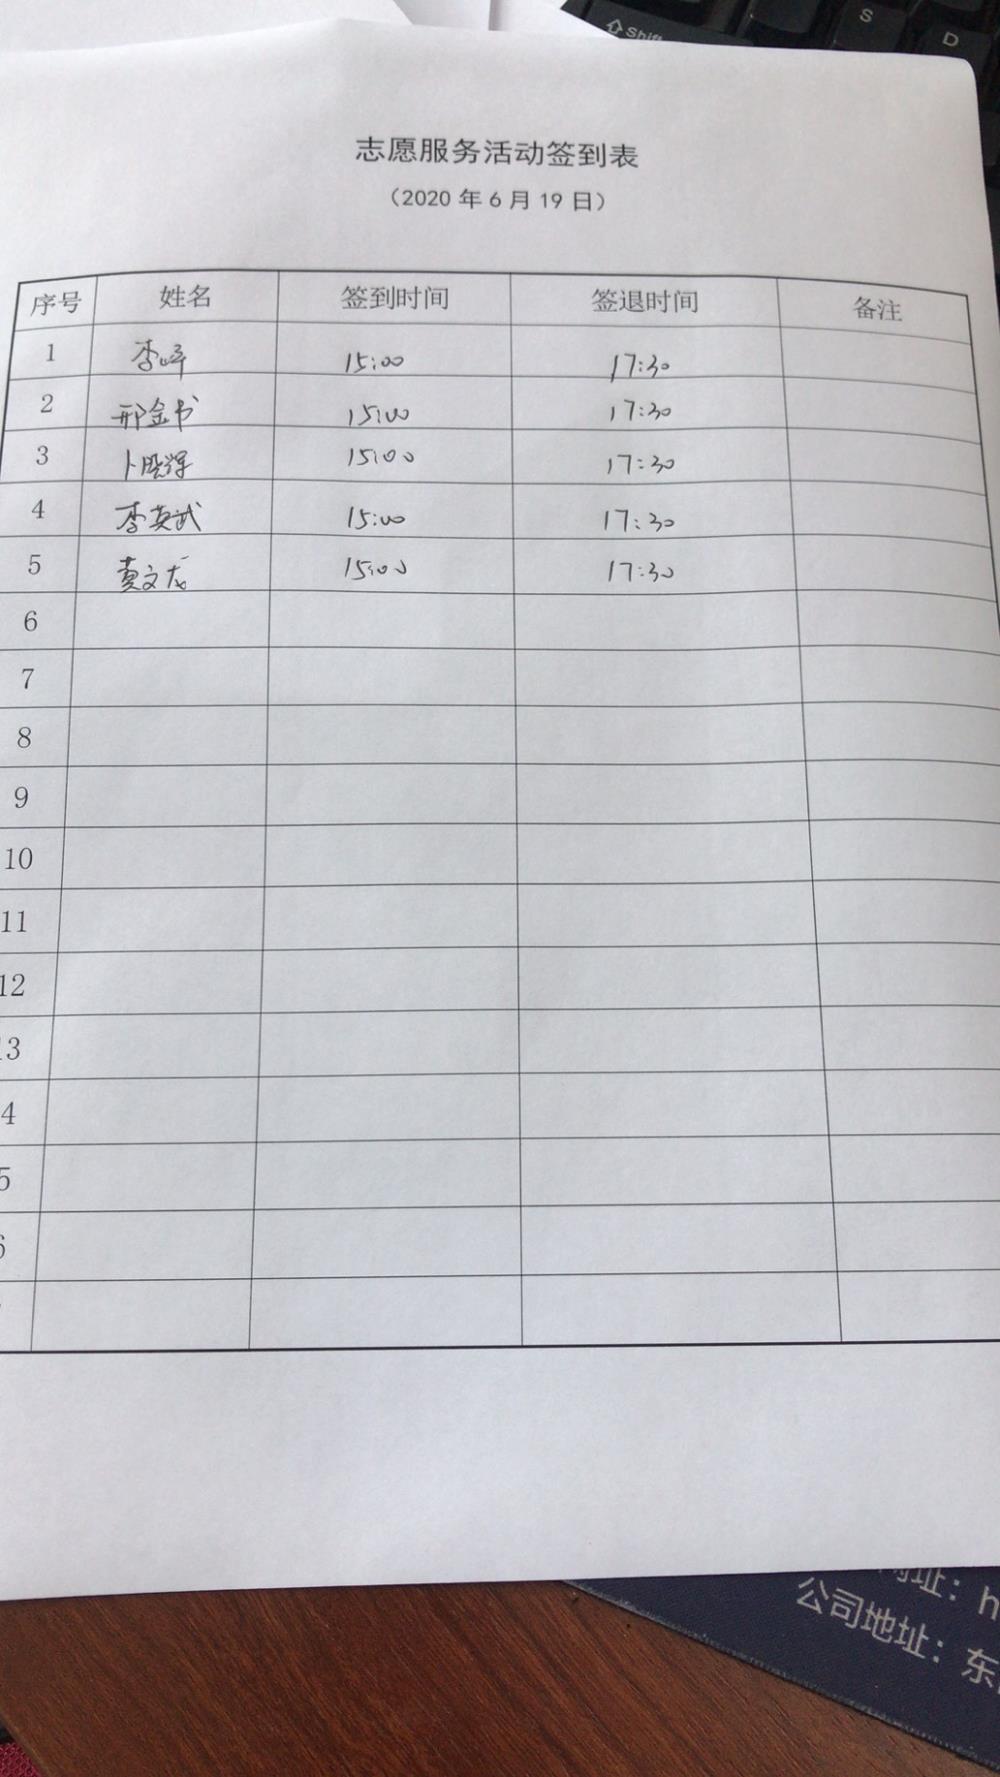 Shift
S
D
志愿服务活动签到表
（2020 年 6 月 19 日）
序号 姓名 签到时间 签退时间 备注
1 李峰 15:00 17:30
2 邢金书 15:00 17:30
3 卜晓辉 15:00 17:30
4 李英武 15:00 17:30
5 文龙 15:00 17:30
6
7
8
9
10
11
12
13
4
5
6
网址：h
公司地址：东